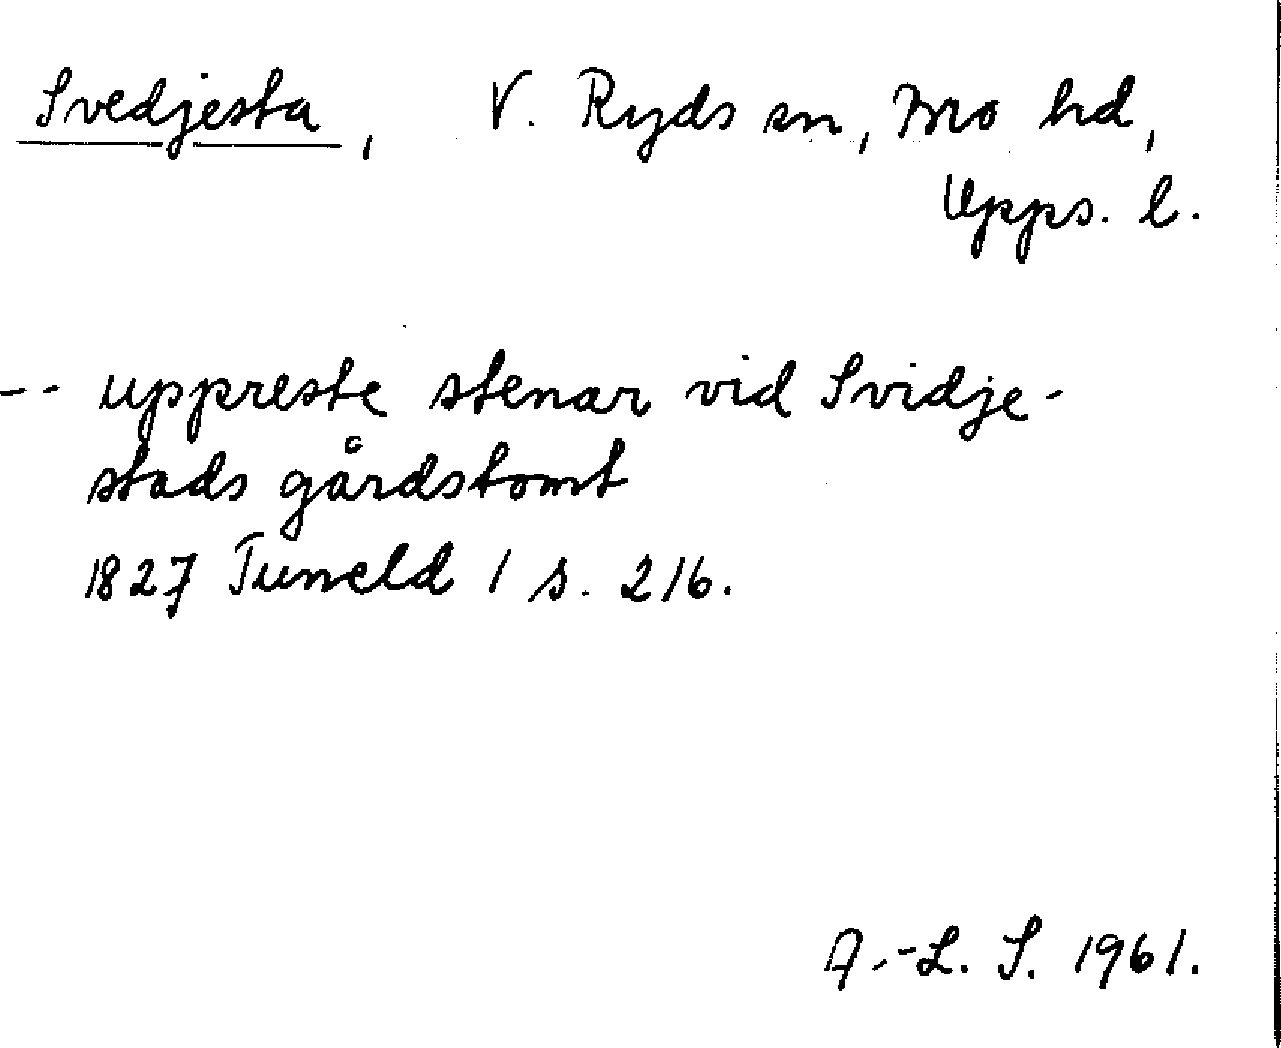 Svedjesta, V. Ryds sn, Mo hd,
Upps. l.
-- uppreste stenar vid Svidje-
stads gårdstomt
1827 Tuneld 1 s. 216.
A.-L. S. 1961.